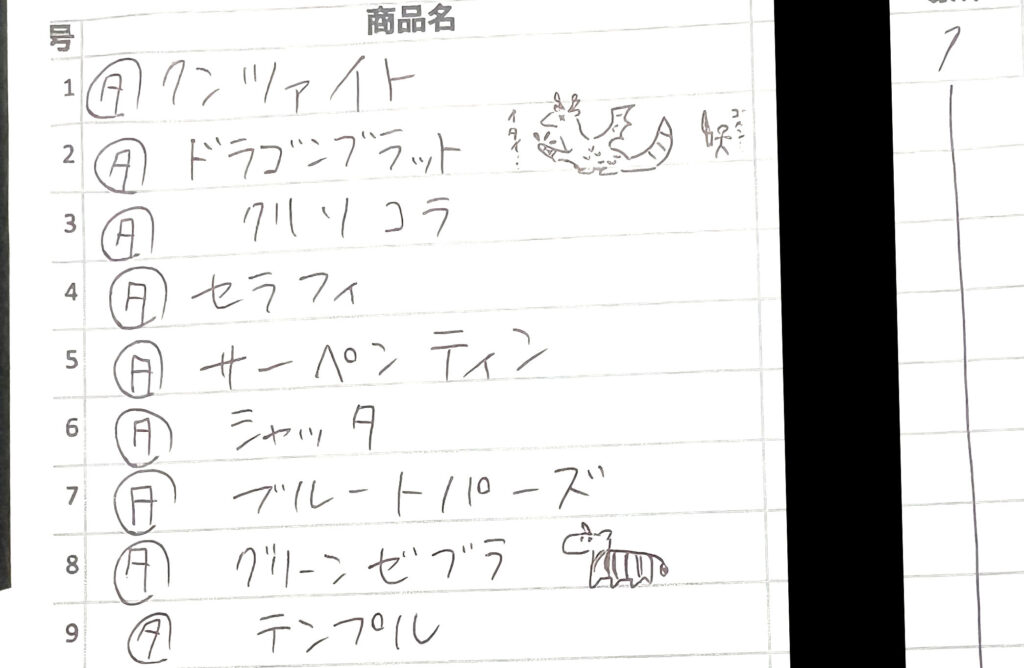 号 商品名
1 タ クンツァイト 1
2 タ ドラゴンブラット イタイ… ゴメン
3 タ クリソコラ
4 タ セラフィ
5 タ サーペンティン
6 タ シャッタ
7 タ ブルートパーズ
8 タ グリーンゼブラ
9 タ テンプル